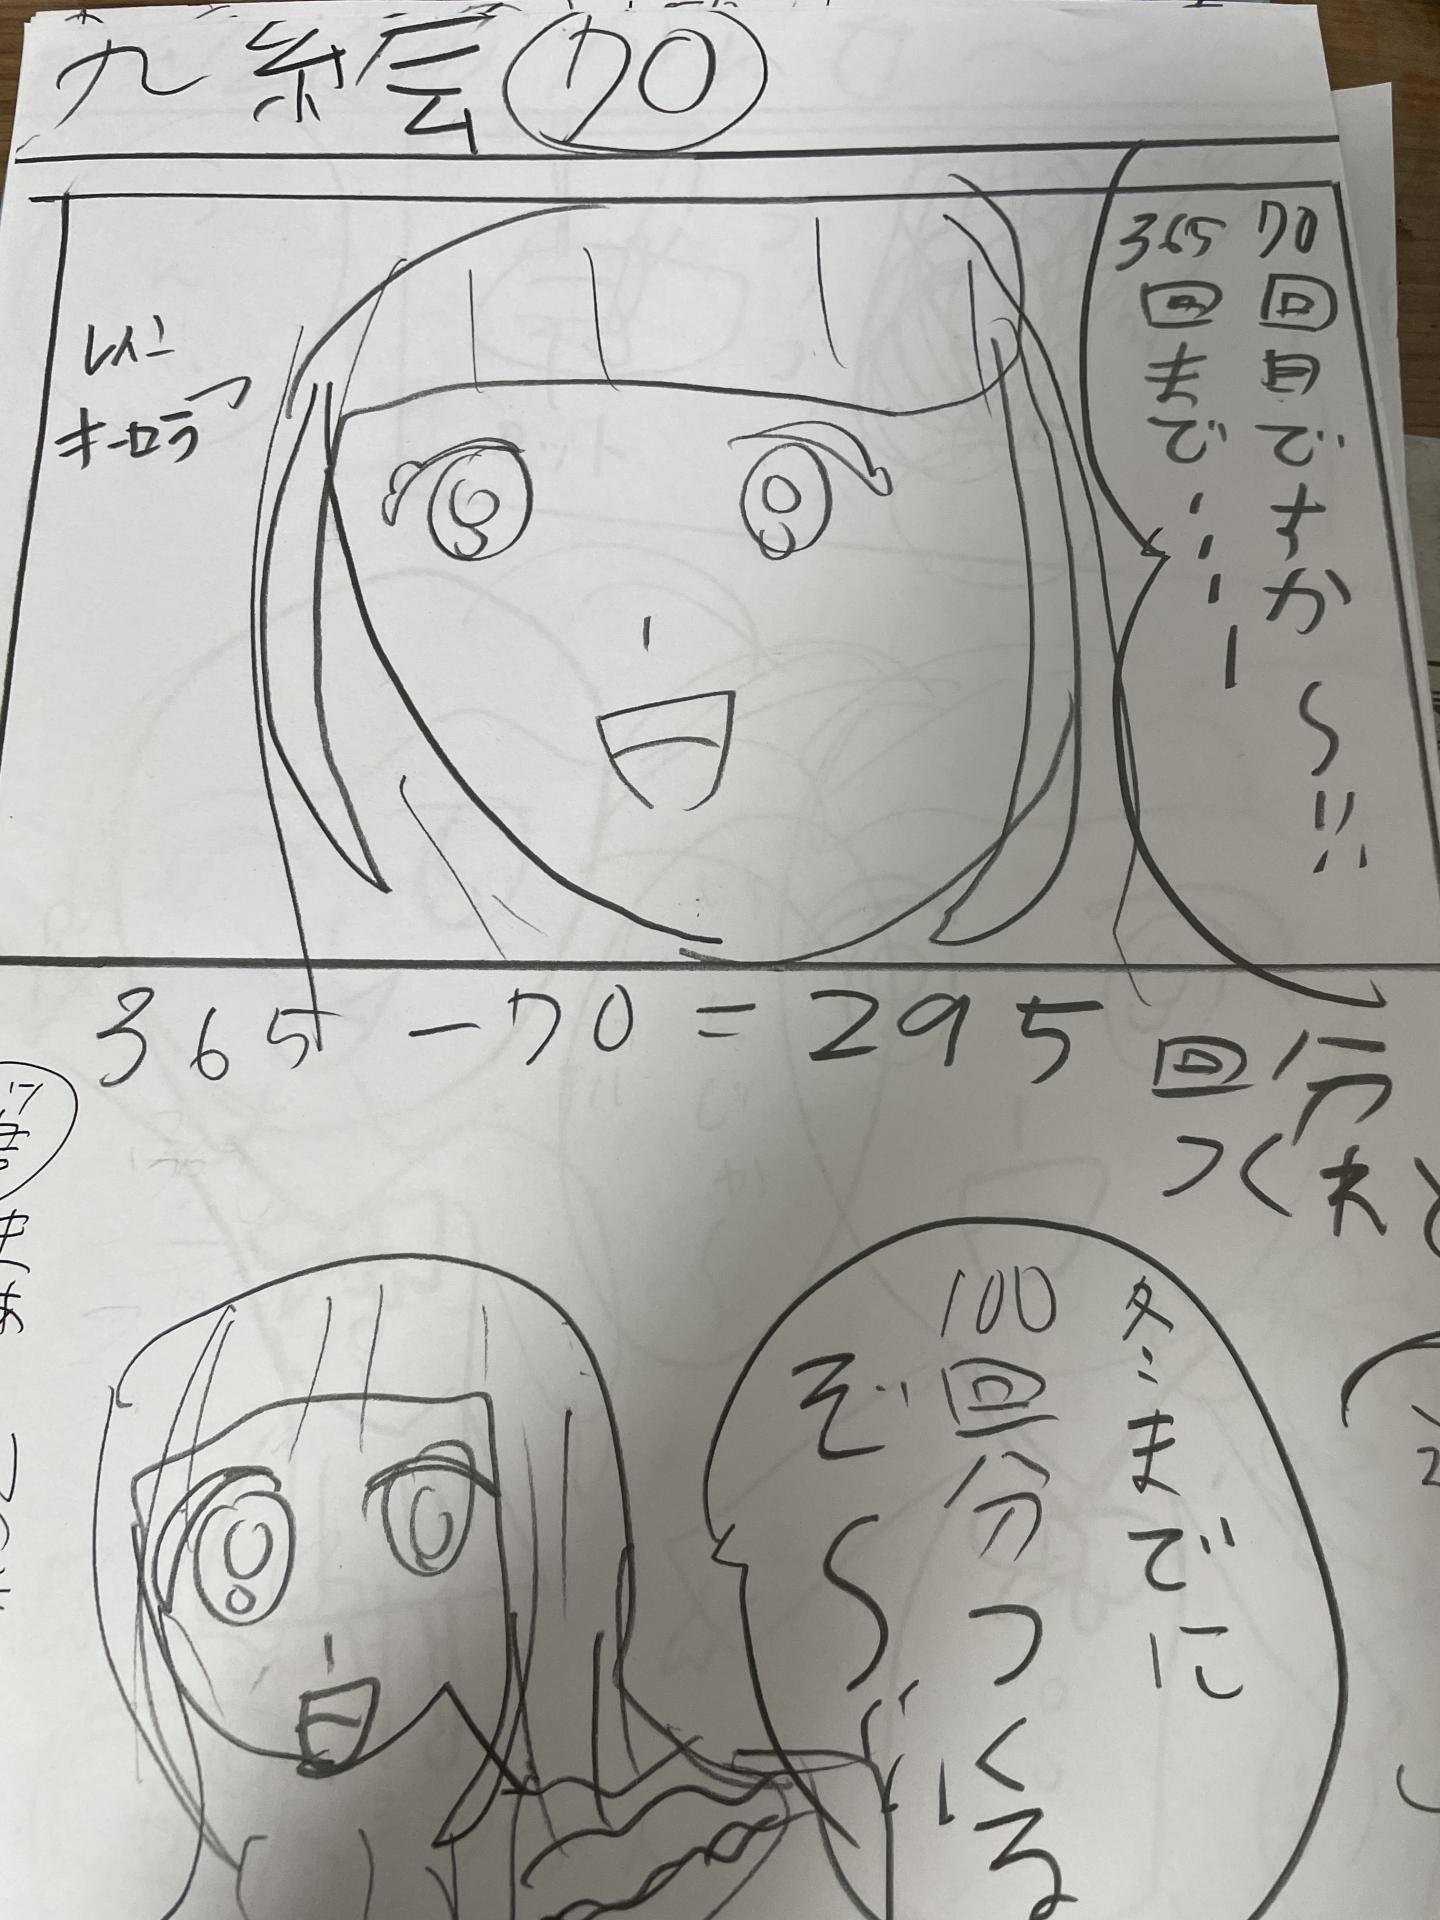 九絵70
70回目ですか〜!!
365回まで・・・ー
レイン
オーロラ
365－70＝295
回分
つくれと
冬までに
100回分つくる
ぞ〜!!